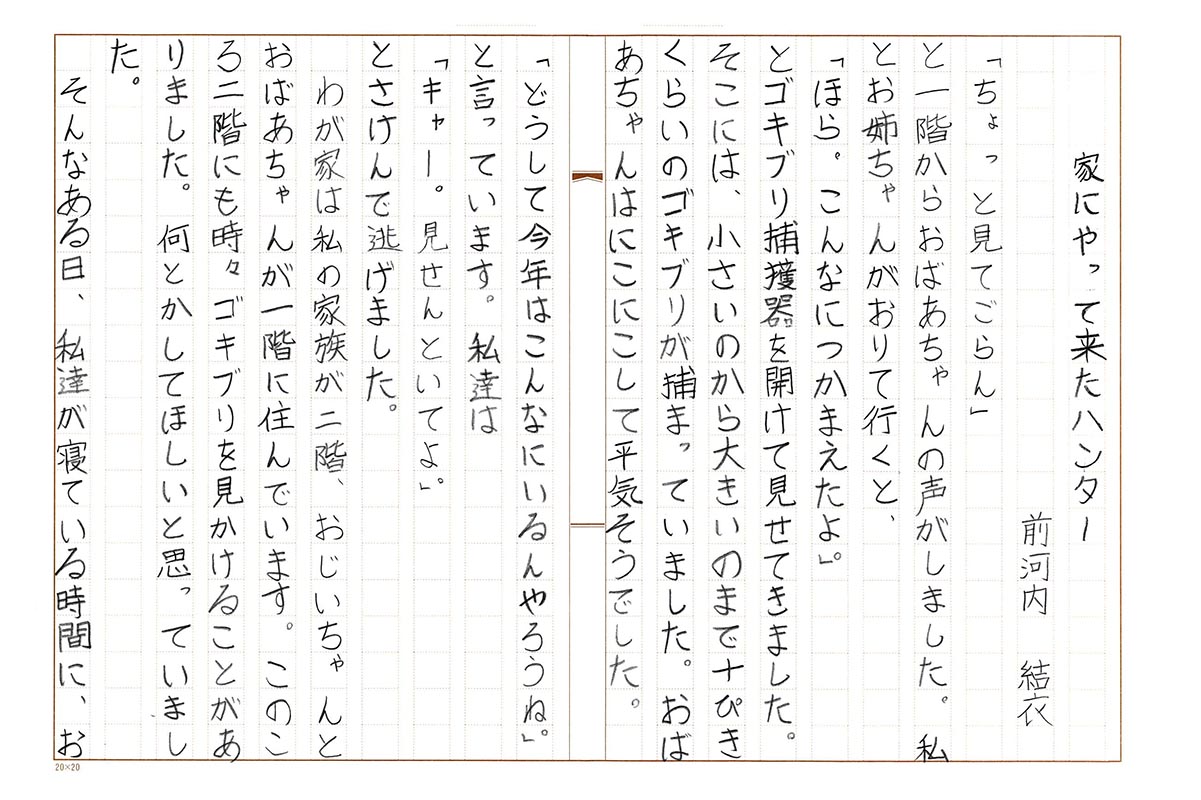 家にやって来たハンター
前河内　結衣
「ちょっと見てごらん」
と一階からおばあちゃんの声がしました。私
とお姉ちゃんがおりて行くと、
「ほら。こんなにつかまえたよ」。
とゴキブリ捕獲器を開けて見せてきました。
そこには、小さいのから大きいのまで十ぴき
くらいのゴキブリが捕まっていました。おば
あちゃんはにこにこして平気そうでした。
「どうして今年はこんなにいるんやろうね」。
と言っています。私達は
「キャー。見せんといてよ」。
とさけんで逃げました。
わが家は私の家族が二階、おじいちゃんと
おばあちゃんが一階に住んでいます。このこ
ろ二階にも時々ゴキブリを見かけることがあ
りました。何とかしてほしいと思っていまし
た。
そんなある日、私達が寝ている時間に、お
20×20